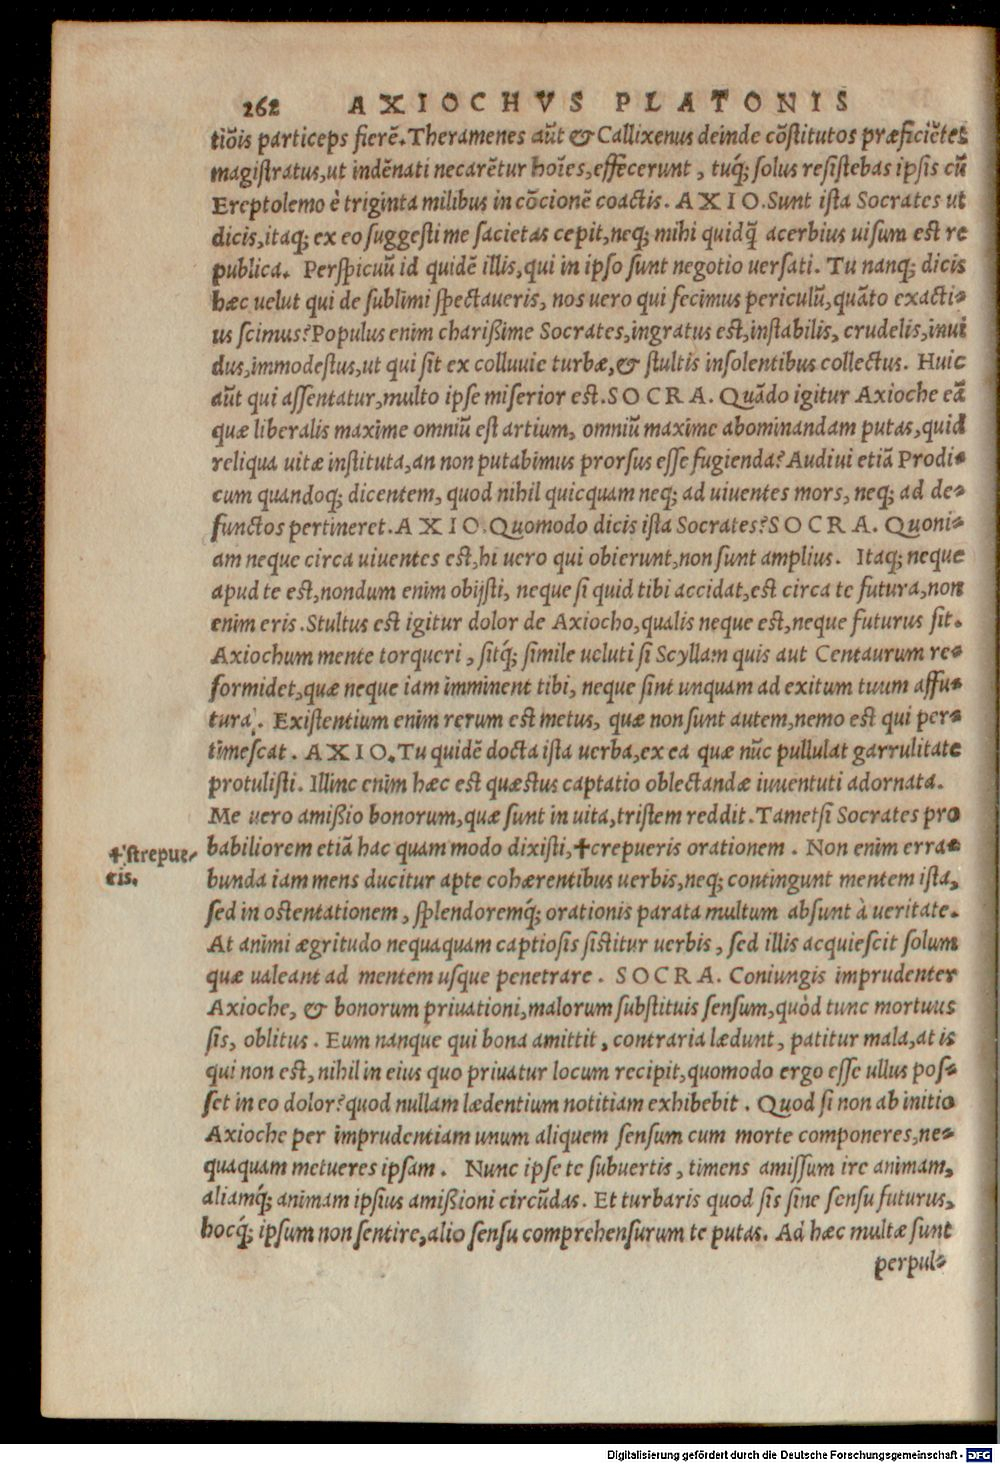 262 AXIOCHVS PLATONIS
tiõis particeps fierẽ. Theramenes aũt & Callixenus deinde cõstitutos præficiẽtes
magistratus, ut indẽnati necarẽtur hoĩes, effecerunt, tuq́; solus resistebas ipsis cũ
Ereptolemo è triginta milibus in cõcionẽ coactis. AXIO. Sunt ista Socrates ut
dicis, itaq; ex eo suggesti me sacietas cepit, neq; mihi quidq̃ acerbius uisum est re
publica. Perspicuũ id quidẽ illis, qui in ipso sunt negotio uersati. Tu nanq; dicis
hæc uelut qui de sublimi spectaueris, nos uero qui fecimus periculũ, quãto exacti-
us scimus? Populus enim charißime Socrates, ingratus est, instabilis, crudelis, inui
dus, immodestus, ut qui sit ex colluuie turbæ, & stultis insolentibus collectus. Huic
aũt qui assentatur, multo ipse miserior est. SOCRA. Quãdo igitur Axioche eã
quæ liberalis maxime omniũ est artium, omniũ maxime abominandam putas, quid
reliqua uitæ instituta, an non putabimus prorsus esse fugienda? Audiui etiã Prodi-
cum quandoq; dicentem, quod nihil quicquam neq; ad uiuentes mors, neq; ad de-
functos pertineret. AXIO. Quomodo dicis ista Socrates? SOCRA. Quoni-
am neque circa uiuentes est, hi uero qui obierunt, non sunt amplius. Itaq; neque
apud te est, nondum enim obijsti, neque si quid tibi accidat, est circa te futura, non
enim eris. Stultus est igitur dolor de Axiocho, qualis neque est, neque futurus sit.
Axiochum mente torqueri, sitq́; simile ueluti si Scyllam quis aut Centaurum re-
formidet, quæ neque iam imminent tibi, neque sint unquam ad exitum tuum affu-
tura. Existentium enim rerum est metus, quæ non sunt autem, nemo est qui per-
timescat. AXIO. Tu quidẽ docta ista uerba, ex ea quæ nũc pullulat garrulitate
protulisti. Illinc enim hæc est quæstus captatio oblectandæ iuuentuti adornata.
Me uero amißio bonorum, quæ sunt in uita, tristem reddit. Tametsi Socrates pro
babiliorem etiã hac quam modo dixisti, ✝crepueris orationem. Non enim erra-
✝strepue/
ris.
bunda iam mens ducitur apte cohærentibus uerbis, neq; contingunt mentem ista,
sed in ostentationem, splendoremq́; orationis parata multum absunt à ueritate.
At animi ægritudo nequaquam captiosis sistitur uerbis, sed illis acquiescit solum
quæ ualeant ad mentem usque penetrare. SOCRA. Coniungis imprudenter
Axioche, & bonorum priuationi, malorum substituis sensum, quòd tunc mortuus
sis, oblitus. Eum nanque qui bona amittit, contraria lædunt, patitur mala, at is
qui non est, nihil in eius quo priuatur locum recipit, quomodo ergo esse ullus pos-
set in eo dolor? quod nullam lædentium notitiam exhibebit. Quod si non ab initio
Axioche per imprudentiam unum aliquem sensum cum morte componeres, ne-
quaquam metueres ipsam. Nunc ipse te subuertis, timens amissum ire animam,
aliamq́; animam ipsius amißioni circũdas. Et turbaris quod sis sine sensu futurus,
hocq́; ipsum non sentire, alio sensu comprehensurum te putas. Ad hæc multæ sunt
perpul-
Digitalisierung gefördert durch die Deutsche Forschungsgemeinschaft - DFG